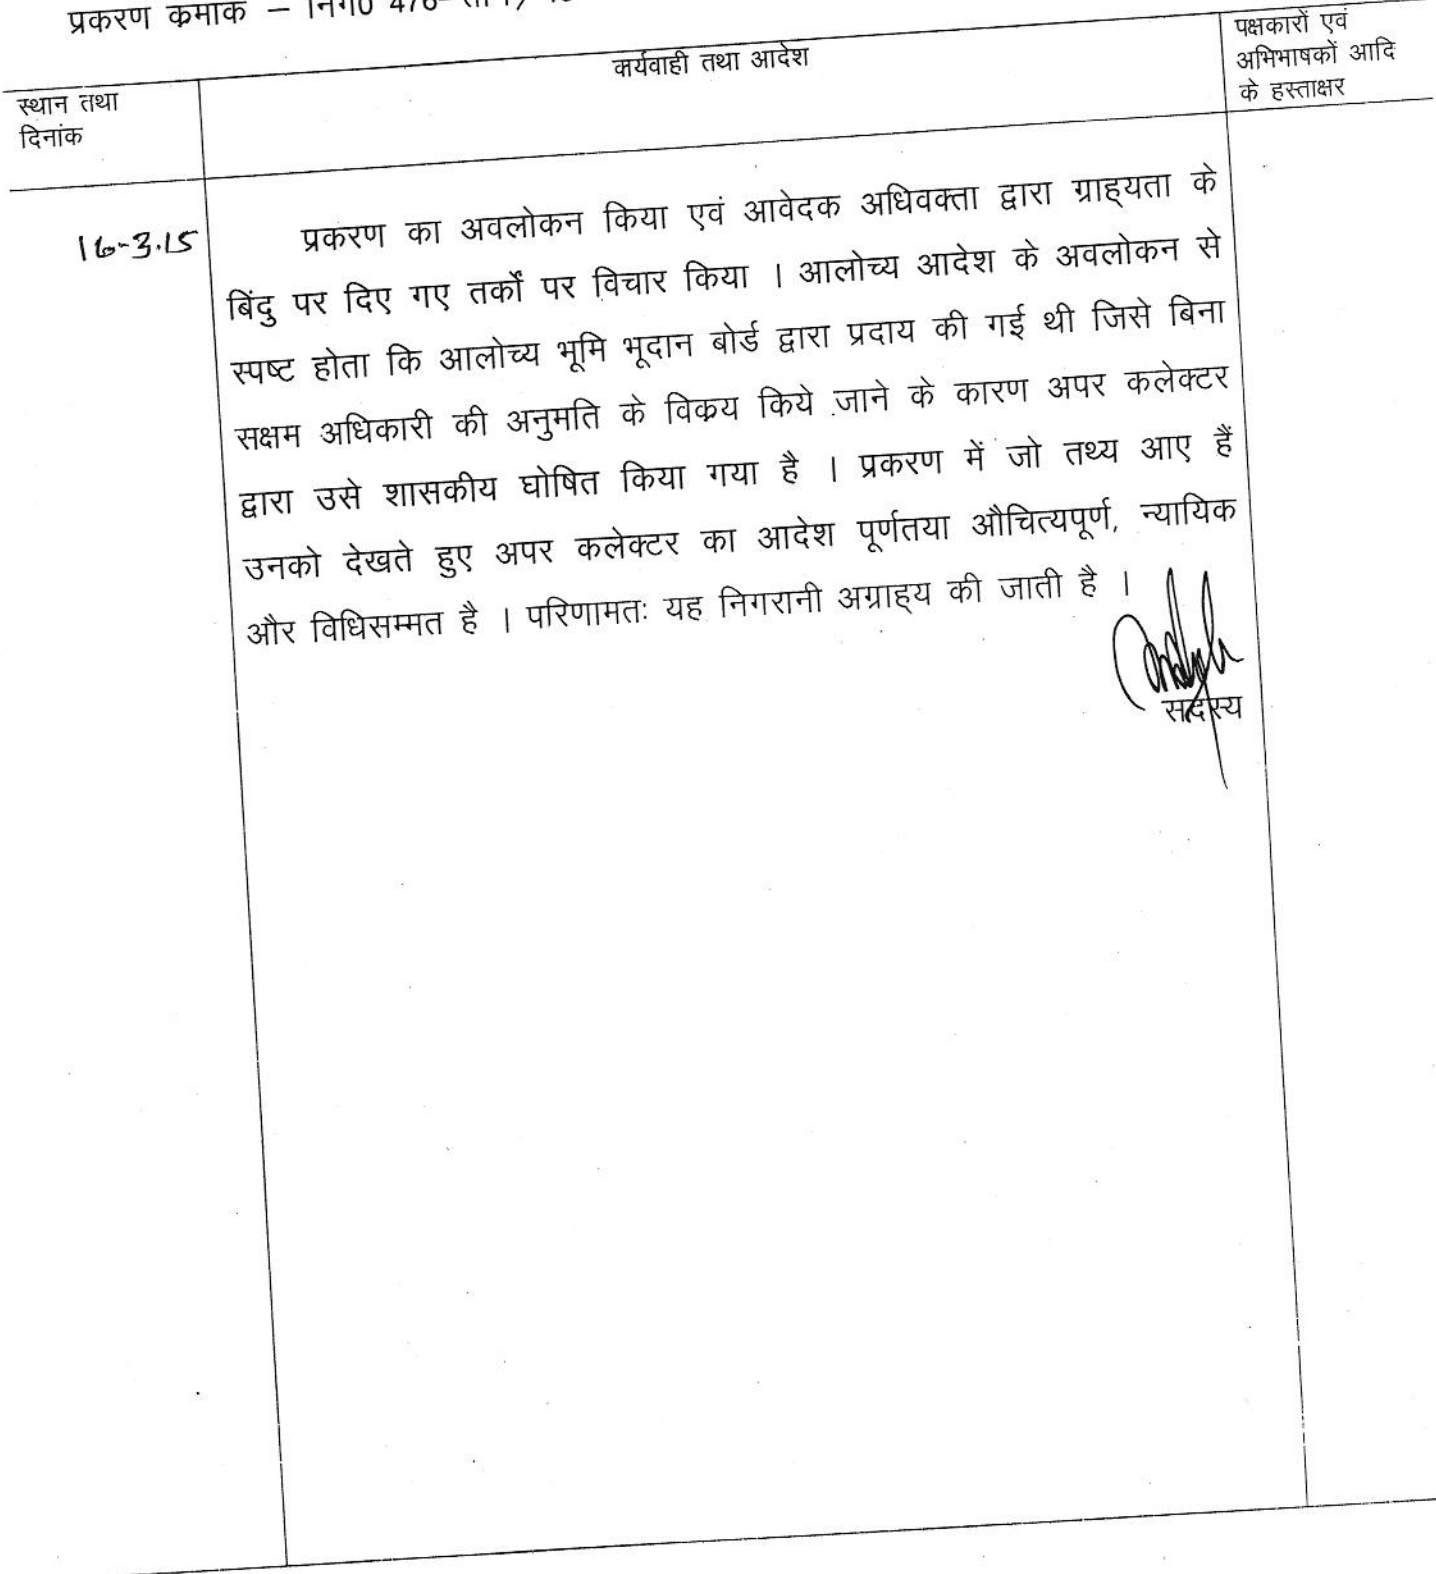 प्रकरण कमांक – निग0
कार्यवाही तथा आदेश
पक्षकारों एवं
अभिभाषकों आदि
के हस्ताक्षर
स्थान तथा
दिनांक
16-3.15
प्रकरण का अवलोकन किया एवं आवेदक अधिवक्ता द्वारा ग्राह्यता के
बिंदु पर दिए गए तर्कों पर विचार किया । आलोच्य आदेश के अवलोकन से
स्पष्ट होता कि आलोच्य भूमि भूदान बोर्ड द्वारा प्रदाय की गई थी जिसे बिना
सक्षम अधिकारी की अनुमति के विक्रय किये जाने के कारण अपर कलेक्टर
द्वारा उसे शासकीय घोषित किया गया है । प्रकरण में जो तथ्य आए हैं
उनको देखते हुए अपर कलेक्टर का आदेश पूर्णतया औचित्यपूर्ण, न्यायिक
और विधिसम्मत है । परिणामतः यह निगरानी अग्राह्य की जाती है ।
सदस्य